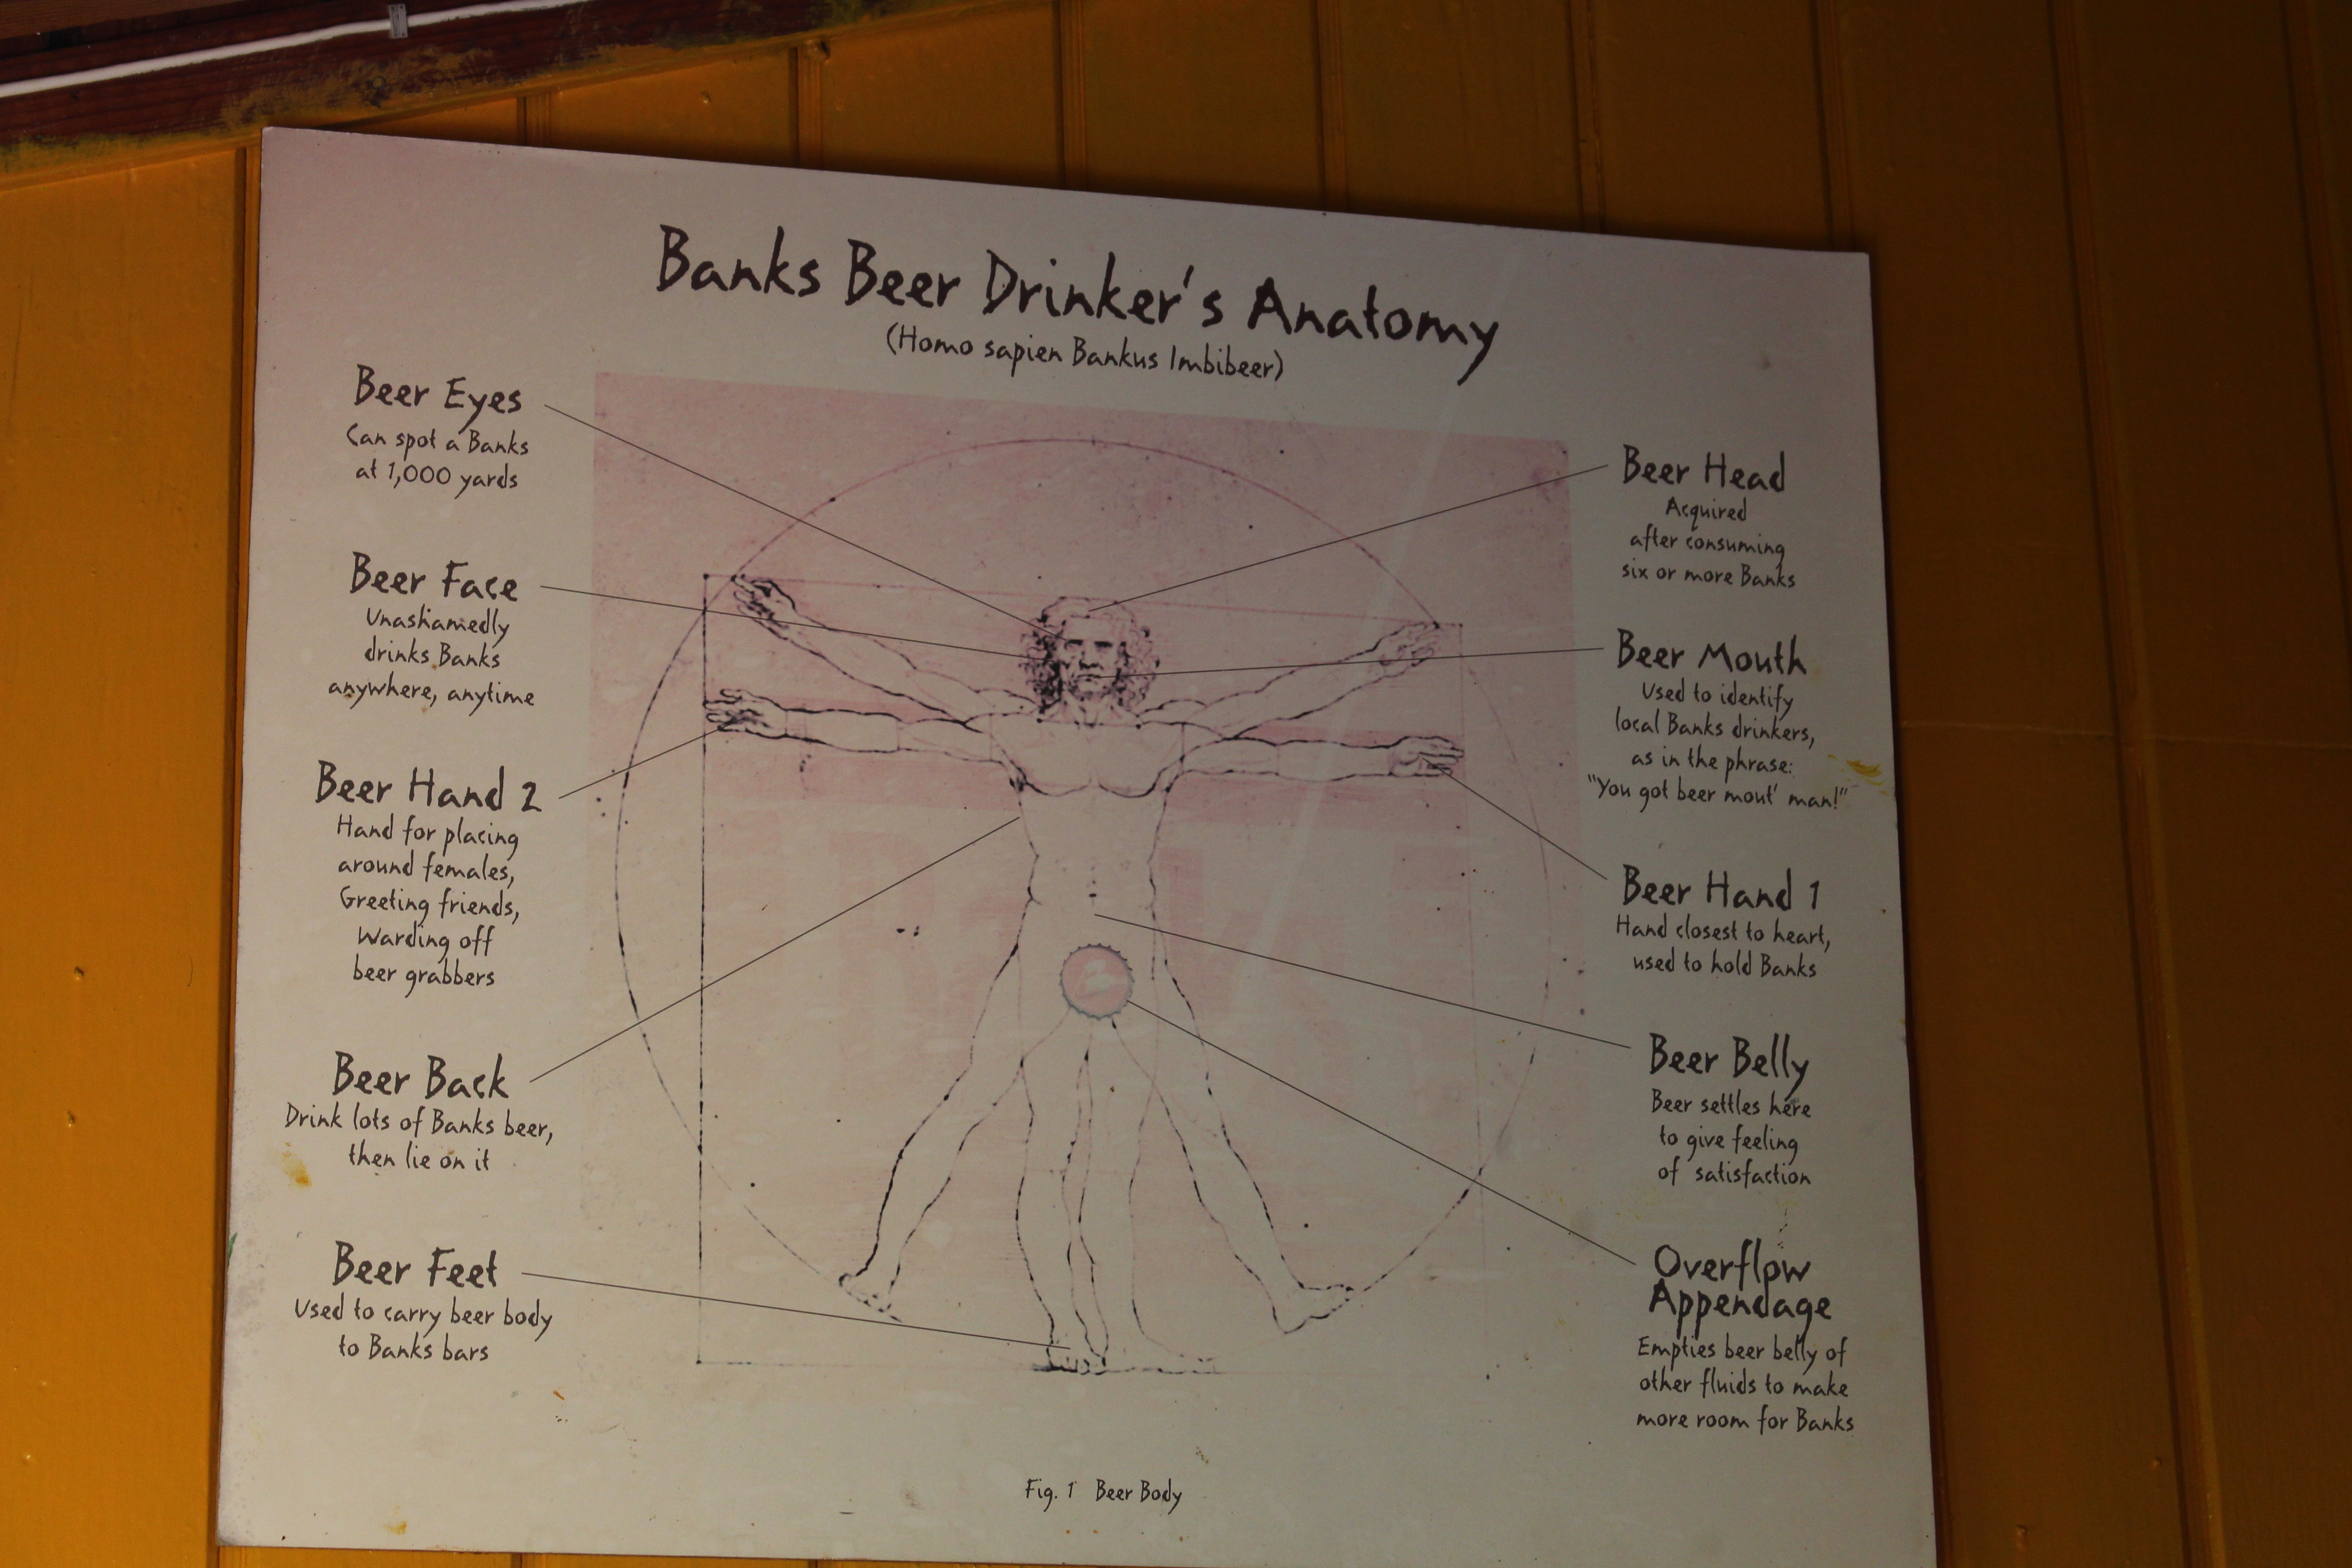 Banks Beer Drinker's Anatomy
(Homo sapien Bankus Imbibeer)
Beer Eyes
Can spot a Banks
at 1,000 yards
Beer Face
Unashamedly
drinks Banks
anywhere, anytime
Beer Hand 2
Hand for placing
around females,
Greeting friends,
Warding off
beer grabbers
Beer Back
Drink lots of Banks beer,
then lie on it
Beer Feet
Used to carry beer body
to Banks bars
Beer Head
Acquired
after consuming
six or more Banks
Beer Mouth
Used to identify
local Banks drinkers,
as in the phrase:
"You got beer mout' man!"
Beer Hand 1
Hand closest to heart,
used to hold Banks
Beer Belly
Beer settles here
to give feeling
of satisfaction
Overflow
Appendage
Empties beer belly of
other fluids to make
more room for Banks
Fig. 1 Beer Body